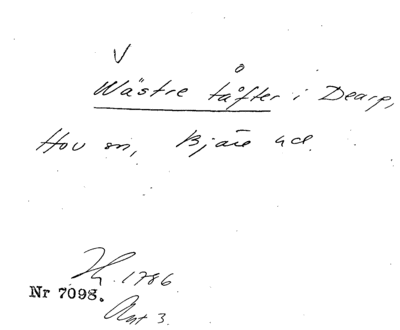 V
Wästre tåfter i Dearp,
Hov sn, Bjäre hd.
1786
Nr 7098.
Akt 3.